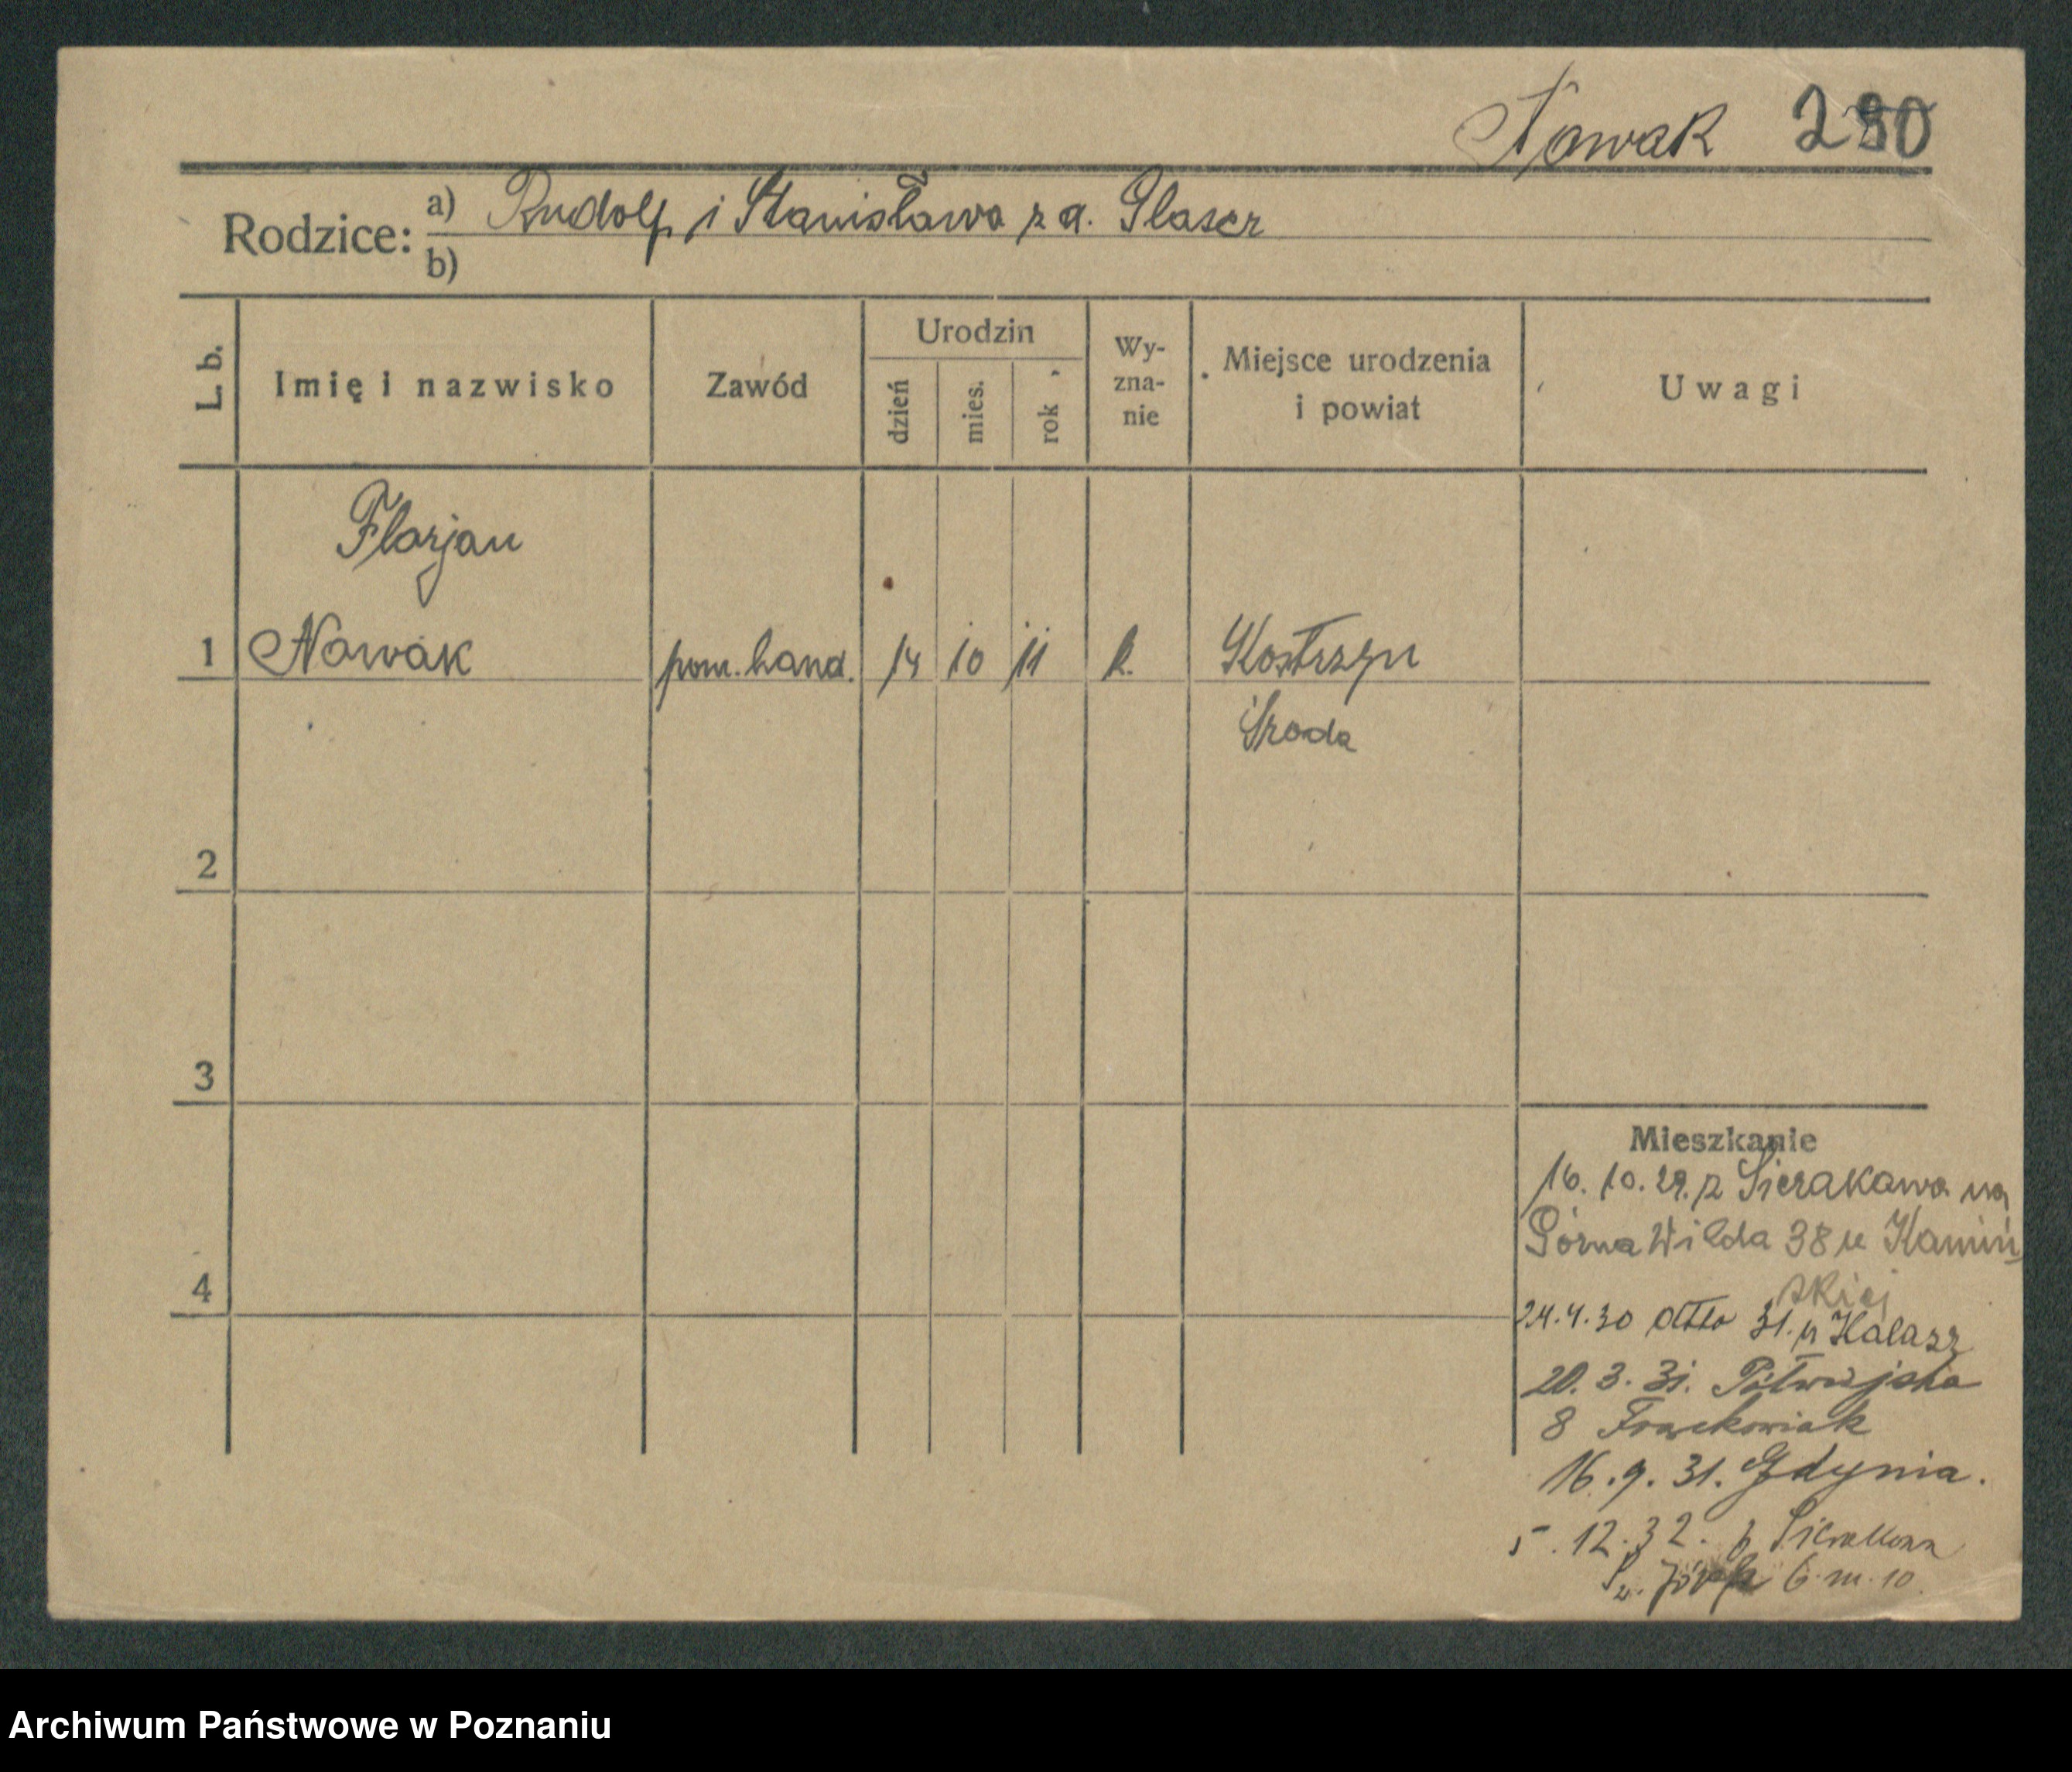 Nowak 280
Rodzice: a) Rudolf i Stanisława z d. Glaser
b)
L. b.
Imię i nazwisko
Zawód
Urodzin
dzień
mies.
rok
Wy-
zna-
nie
Miejsce urodzenia
i powiat
Uwagi
Florjan
1 Nowak pom. hand. 14 10 11 k. Kostrzyn
Środa
2
3
4
Mieszkanie
16. 10. 29. z Sierakowa na
Górna Wilda 38 u Kamiń-
skiej
24.4.30 dtto 31. u Kałasz
20. 3. 31. Półwiejska
8 Frąckowiak
16. 9. 31. Gdynia.
5. 12. 32. z
Św. Józefa 6 m. 10.
Archiwum Państwowe w Poznaniu